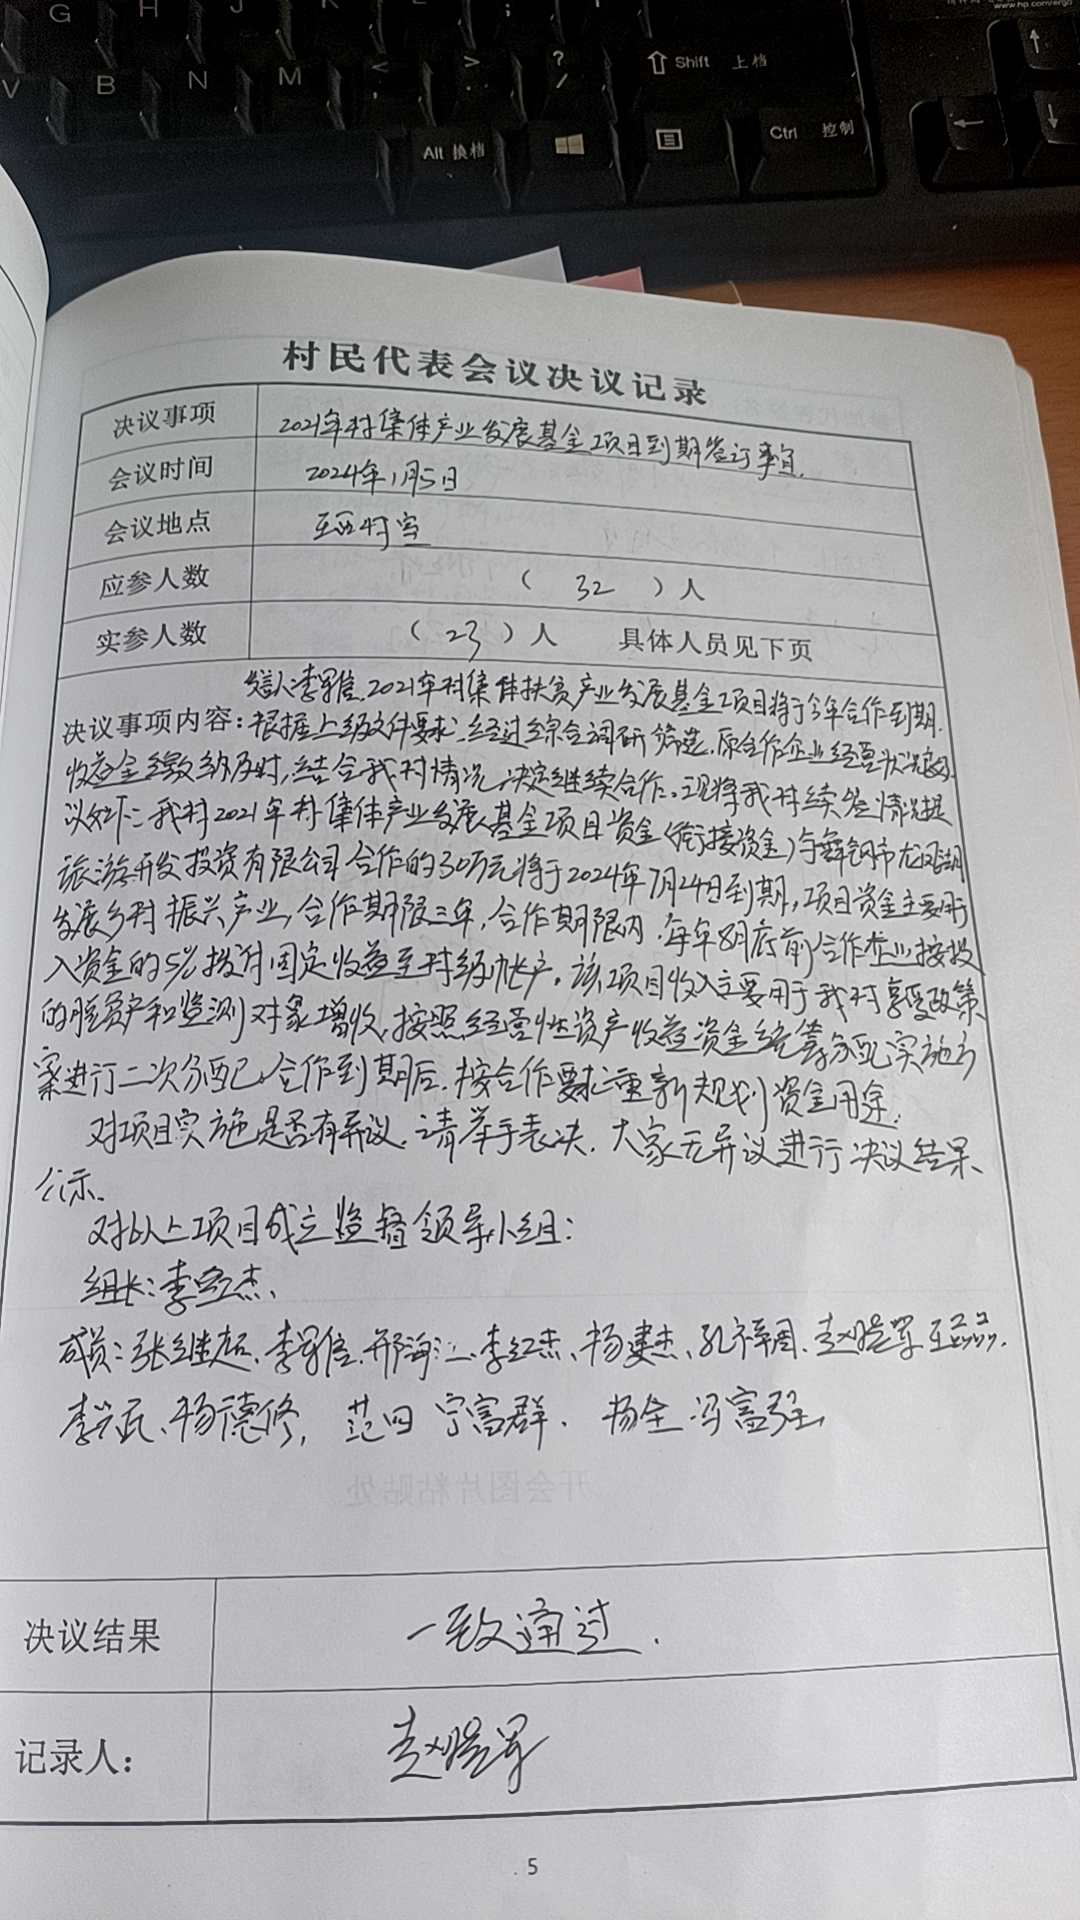 G H J K L ;
V B N M < , > . ? /
Shift 上档
Alt 换档
Ctrl 控制
www.hp.com/ergo
村民代表会议决议记录
决议事项 2021年村集体产业发展基金项目到期签订事宜.
会议时间 2024年1月5日
会议地点 村室
应参人数 ( 32 ) 人
实参人数 ( 23 ) 人 具体人员见下页
2021年村集体扶贫产业发展基金项目将于今年合作到期.
决议事项内容: 根据上级文件要求.经过综合调研筛选.原合作企业经营状况良好.
收益金缴纳及时,结合我村情况.决定继续合作.现将我村续签情况提
议如下:我村2021年村集体产业发展基金项目资金(衔接资金)与舞钢市龙凤湖
旅游开发投资有限公司合作的30万元将于2024年7月24日到期,项目资金主要用于
发展乡村振兴产业,合作期限三年,合作期限内.每年8月底前合作企业按投
入资金的5%拨付固定收益至村级账户.该项目收入主要用于我村享受政策
的脱贫户和监测对象增收,按照经营性资产收益资金统筹分配实施方
案进行二次分配.合作到期后.按合作要求重新规划资金用途.
对项目实施是否有异议.请举手表决.大家无异议进行决议结果
公示.
对以上项目成立监督领导小组:
组长:李红杰.
成员:张继超、李军信、邢海江、李红杰、杨建杰、孔祥周、赵晓军
杨德修, 范四 宁富群. 杨全 冯富强
开会图片粘贴处
决议结果 一致通过.
记录人: 赵晓军
5